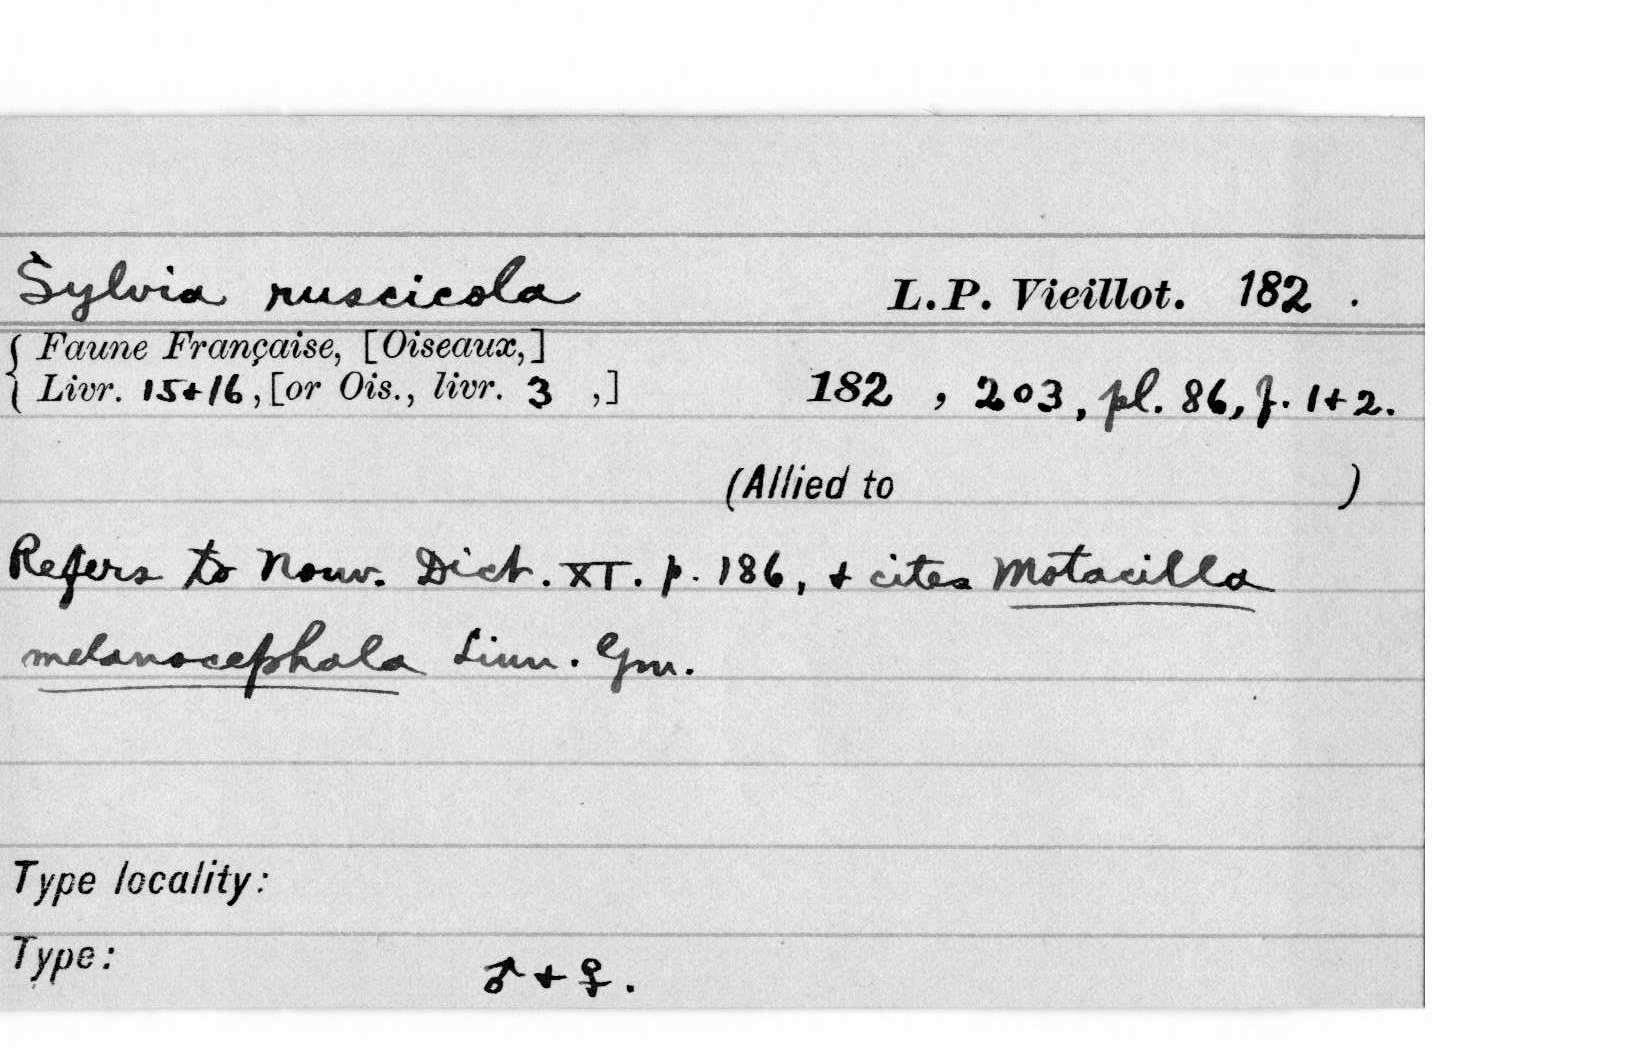 Sylvia ruscicola L.P. Vieillot. 182 .
{ Faune Française, [Oiseaux,]
Livr. 15+16, [or Ois., livr. 3 ,] 182 , 203, pl. 86, f. 1+2.
(Allied to )
Refers to Nouv. Dict. XI. p. 186, + cites Motacilla
melanocephala Linn. Gm.
Type locality:
Type: ♂ + ♀.